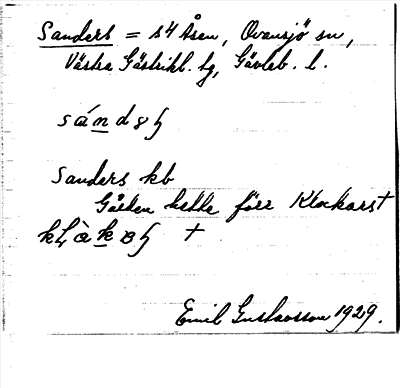 Sanders = s4 Åsen, Ovansjö sn,
Västra Gästrikl. hg, Gävleb. l.
sándsh
Sanders kb
Gården hette förr Klockars †
†
Emil Gustavsson 1929.